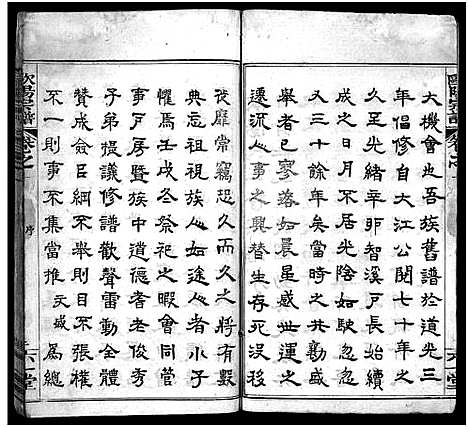 大機會也吾族舊譜於道光三
年倡修自大江公閱七十一年
至光緒辛卯智溪戶長始續
成之日月不居光陰如駛忽忽
又三十餘年矣前之同勷盛
舉者已寥落如晨星感世運之
遷流人事之興替生存沒移
後靡常竊恐久而久之將有數
典忘祖視族人如途人者小子
懼焉壬戌冬祭祀之暇會同管
事戶房暨族中道德耆老俊秀
子弟提議修譜歡聲雷動全體
贊成僉曰綱不舉則目不張權
不一則事不集當推天盛為總
歐陽宗譜
卷之
序
六一堂